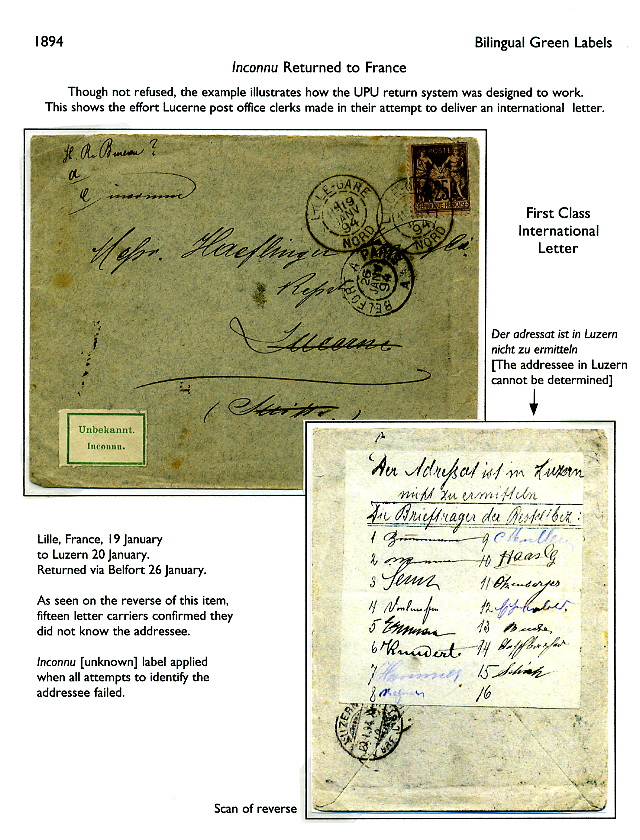 1894
Bilingual Green Labels
Inconnu Returned to France
Though not refused, the example illustrates how the UPU return system was designed to work.
This shows the effort Lucerne post office clerks made in their attempt to deliver an international letter.
inconnu
LILLE-GARE
19
JANV
94
NORD
POSTE
25
94
NORD
BELFORT A PARIS
26
JANV
94
Messr. Haeflinger
Lucerne
(Suisse)
Unbekannt.
Inconnu.
First Class
International
Letter
Der adressat ist in Luzern
nicht zu ermitteln
[The addressee in Luzern
cannot be determined]
Der Adreßat ist in Luzern
nicht zu ermitteln
Die Briefträger der Bestellbez:
1
2
3
4
5
6 Kundert
7
8
9
10 Haas G
11
12
13
14
15
16
LUZERN
Lille, France, 19 January
to Luzern 20 January.
Returned via Belfort 26 January.
As seen on the reverse of this item,
fifteen letter carriers confirmed they
did not know the addressee.
Inconnu [unknown] label applied
when all attempts to identify the
addressee failed.
Scan of reverse